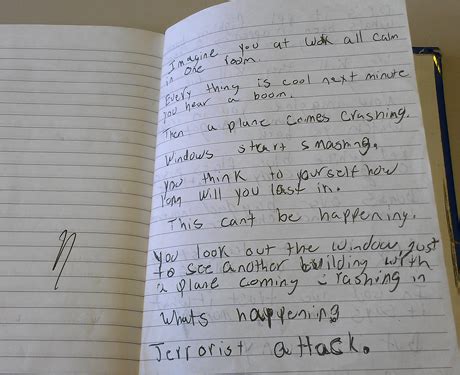 Imagine you at work all calm
in one room.
Every thing is cool next minute
you hear a boom.
Then a plane comes crashing.
Windows start smashing.
you think to yourself how
long will you last in.
This cant be happening.
You look out the window just
to see another building with
a plane coming crashing in
Whats happening
Terrorist attack.